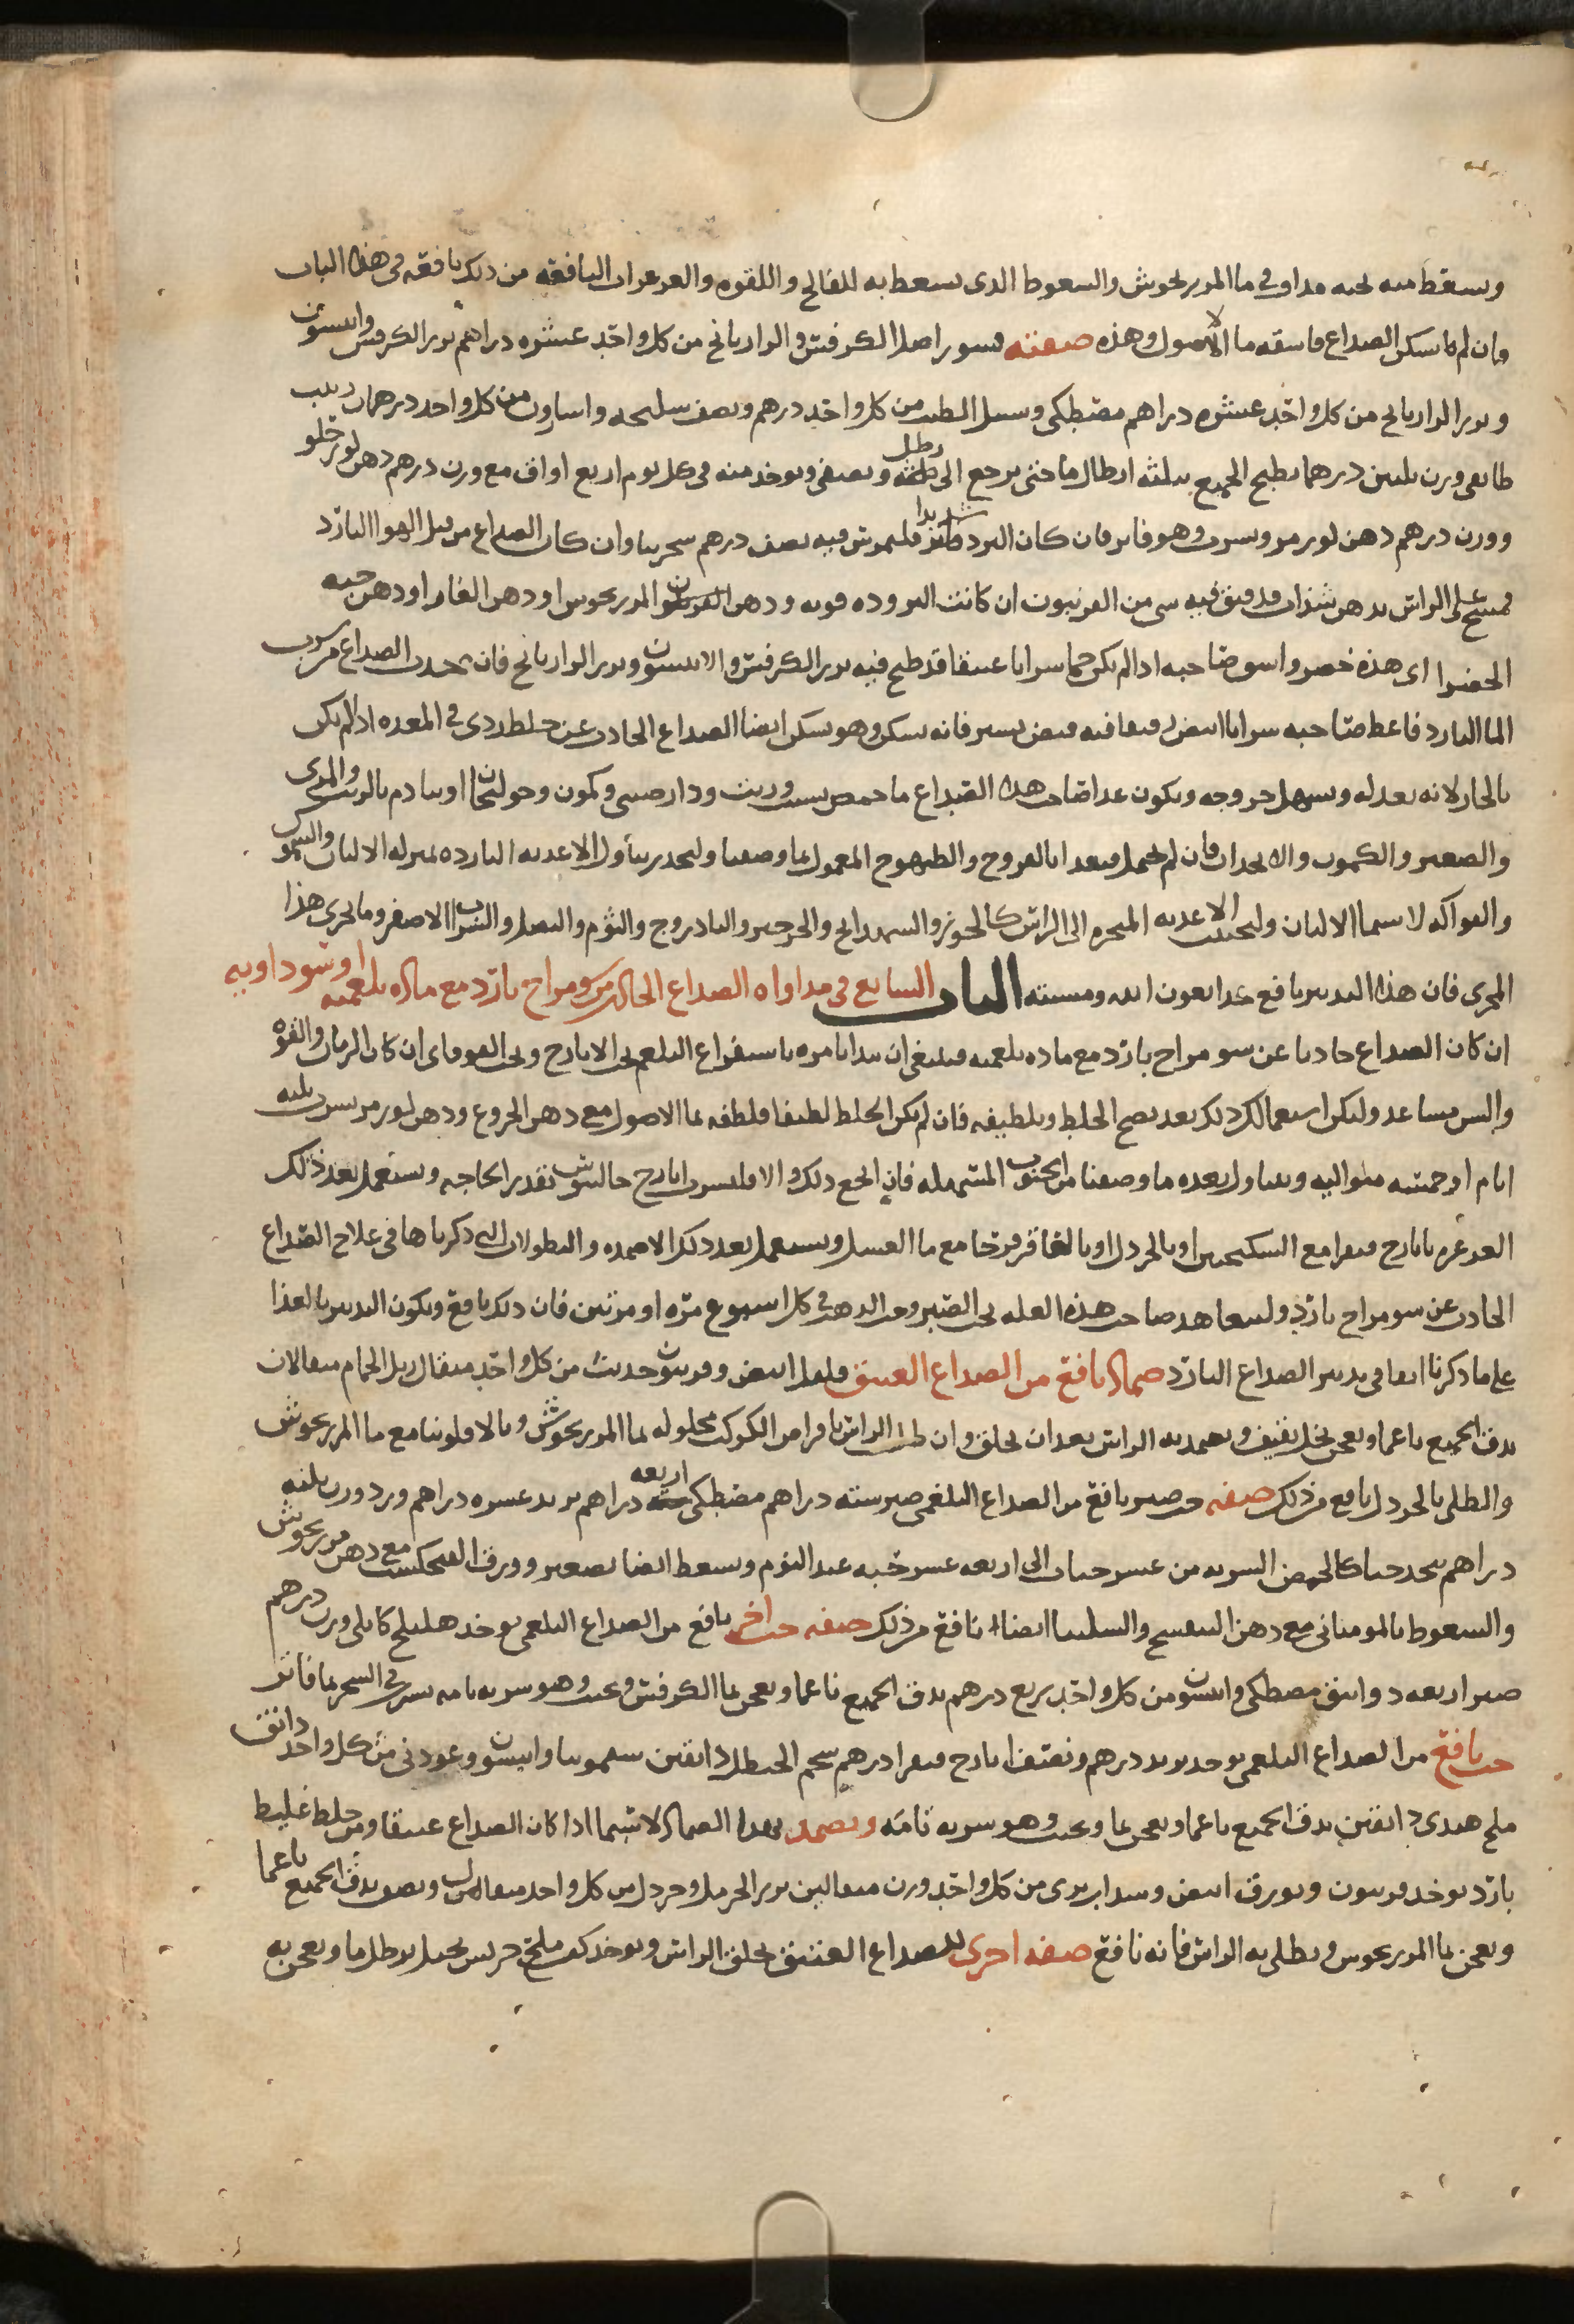 ويسعط منه بحبه مداوفي ما المرزنجوش والسعوط الدى يسعط به للفالج واللقوه والغرغرات النافعه من ذلك نافعه فى هذا الباب
فان لم يسكن الصداع فاسقه ما الاصول وهذه صفته قسور اصل الكرفس والرازيانج من كل واحد عشره دراهم بزر الكرفس وانيسون
وبزر الرازيانج من كل واحد عشره دراهم مصطكى وسنبل الطيب من كل واحد درهم ونصف سليخه واسارون من كل واحد درهمان زبيب
طايفى وزن ثلثين درهما يطبخ الجميع بثلثه ارطال ما حتى يرجع الى رطل ويصفى ويوخذ منه فى كل يوم اربع اواق مع وزن درهم دهن لوز حلو
ووزن درهم دهن لوز مر ويشرب وهو فاتر فان كان البرد شديدا فليمرس فيه نصف درهم سجزنيا وان كان الصداع من قبل الهوا البارد
فمسح على الراس بدهن سذاب قد فتق فيه شى من الفربيون ان كانت البروده قويه ودهن المرزنجوس او دهن الغار او دهن حبه
الخضرا اى هذه حضر واسق صاحبه اذا لم يكن حما شرابا عتيقا قد طبخ فيه بزر الكرفس والانيسون وبزر الرازيانج فان حدث الصداع من شرب
الما البارد فاعط صاحبه شرابا ابيض فيه قبض يسير فانه يسكن وهو يسكن ايضا الصداع الحادث عن خلط ردى فى المعده اذا لم يكن
بالحار لانه يعدله ويسهل خروجه ويكون غدا صاحب هدا الصداع ما حمص بشبت وزيت ودارصينى وكمون وخولنجان او بنا دم بالزيت والمرى
والصعتر والكمون والانجدان فان لم يحتمل فيغدا بالفروج والطيهوج المعمول بما وصفنا وليحدر تناول الاغديه البارده بمنزله الالبان والسموك
والفواكه لا سيما الالبان وليجتنب الاغديه المبخره الى الراس كالجوز والشهدانج والجرجير والبادروج والثوم والبصل والشراب الاصفر وما يجرى هذا
المجرى فان هذا التدبير نافع جدا بعون الله ومشيته الباب السابع فى مداواه الصداع الحادث من سو مزاج بارد مع ماده بلغميه او سوداويه
ان كان الصداع حادثا عن سو مزاج بارد مع ماده بلغميه فينبغى ان يبدا بامره باستفراغ البلغم بحب الايارج وبحب القوقاى ان كان الزمان والقوه
والسن مساعد وليكن استعمالك ذلك بعد نضج الخلط وتلطيفه فان لم يكن الخلط لطيفا فلطفه بما الاصول مع دهن الخروع ودهن لوز مر يشرب ثلثه
ايام او خمسه متواليه ويتناول بعده ما وصفنا من الحبوب المسهله فان انجع ذلك والا فليشرب ايارج جالينوس بقدر الحاجه ويستعمل بعد ذلك
الغرغره بايارج فيقرا مع السكنجبين او بالخردل او بالعاقرقرحا مع ما العسل ويستعمل بعد ذلك الاضمده والنطولات التى ذكرناها فى علاج الصداع
الحادث عن سو مزاج بارد وليتعاهد صاحب هذه العله بحب الصبر وحب الدهب فى كل اسبوع مره او مرتين فان ذلك نافع ويكون التدبير بالغذا
على ما ذكرنا انفا فى تدبير الصداع البارد ضماد نافع من الصداع العتيق فلفل ابيض وفربيون حديث من كل واحد مثقال زبل الحمام مثقالان
يدق الجميع ناعما ويعجن بخل ثقيف ويضمد به الراس بعد ان يحلق وان طلى الراس باقراص الكوكب محلوله بما المرزنجوش وبالافلونيا مع ما المرزنجوش
والطلى بالخردل نافع من ذلك صفه حب صبر نافع من الصداع البلغمى صبر سته دراهم مصطكى اربعه دراهم تربد عشره دراهم ورد وزن ثلثه
دراهم يتخد حبا كالحمص الشربه من عشر حبات الى اربعه عشر حبه عند النوم ويسعط ايضا بصعتر وورق الفنجنكشت مع دهن مرزنجوش
والسعوط بالموميانى مع دهن البنفسج والسليثا ايضا نافع من ذلك صفه حب اخر نافع من الصداع البلغمى يوخد هليلج كابلى وزن درهم
صبر اربعه دوانيق مصطكى وانيسون من كل واحد بربع درهم يدق الجميع ناعما ويعجن بما الكرفس ويحبب وهو شربه تامه يشرب فى السحر بما فاتر
حب نافع من الصداع البلغمى يوخد تربد درهم ونصف ايارج فيقرا درهم شحم الحنظل دانقين سقمونيا وانيسون وعود نى من كل واحد دانق
ملح هندى دانقين يدق الجميع ناعما ويعجن بما ويحبب وهو شربه تامه ويضمد بهدا الضماد لا سيما اذا كان الصداع عتيقا ومن خلط غليظ
بارد يوخد فربيون وبورق ابيض وسداب برى من كل واحد وزن مثقالين بزر الحرمل وخردل من كل واحد مثقال ونصف يدق الجميع ناعما
ويعجن بما المرزنجوس ويطلى به الراس فانه نافع صفه اخرى للصداع العتيق يحلق الراس ويوخد كف ملح جريش بخل برطل ما ويعجن به